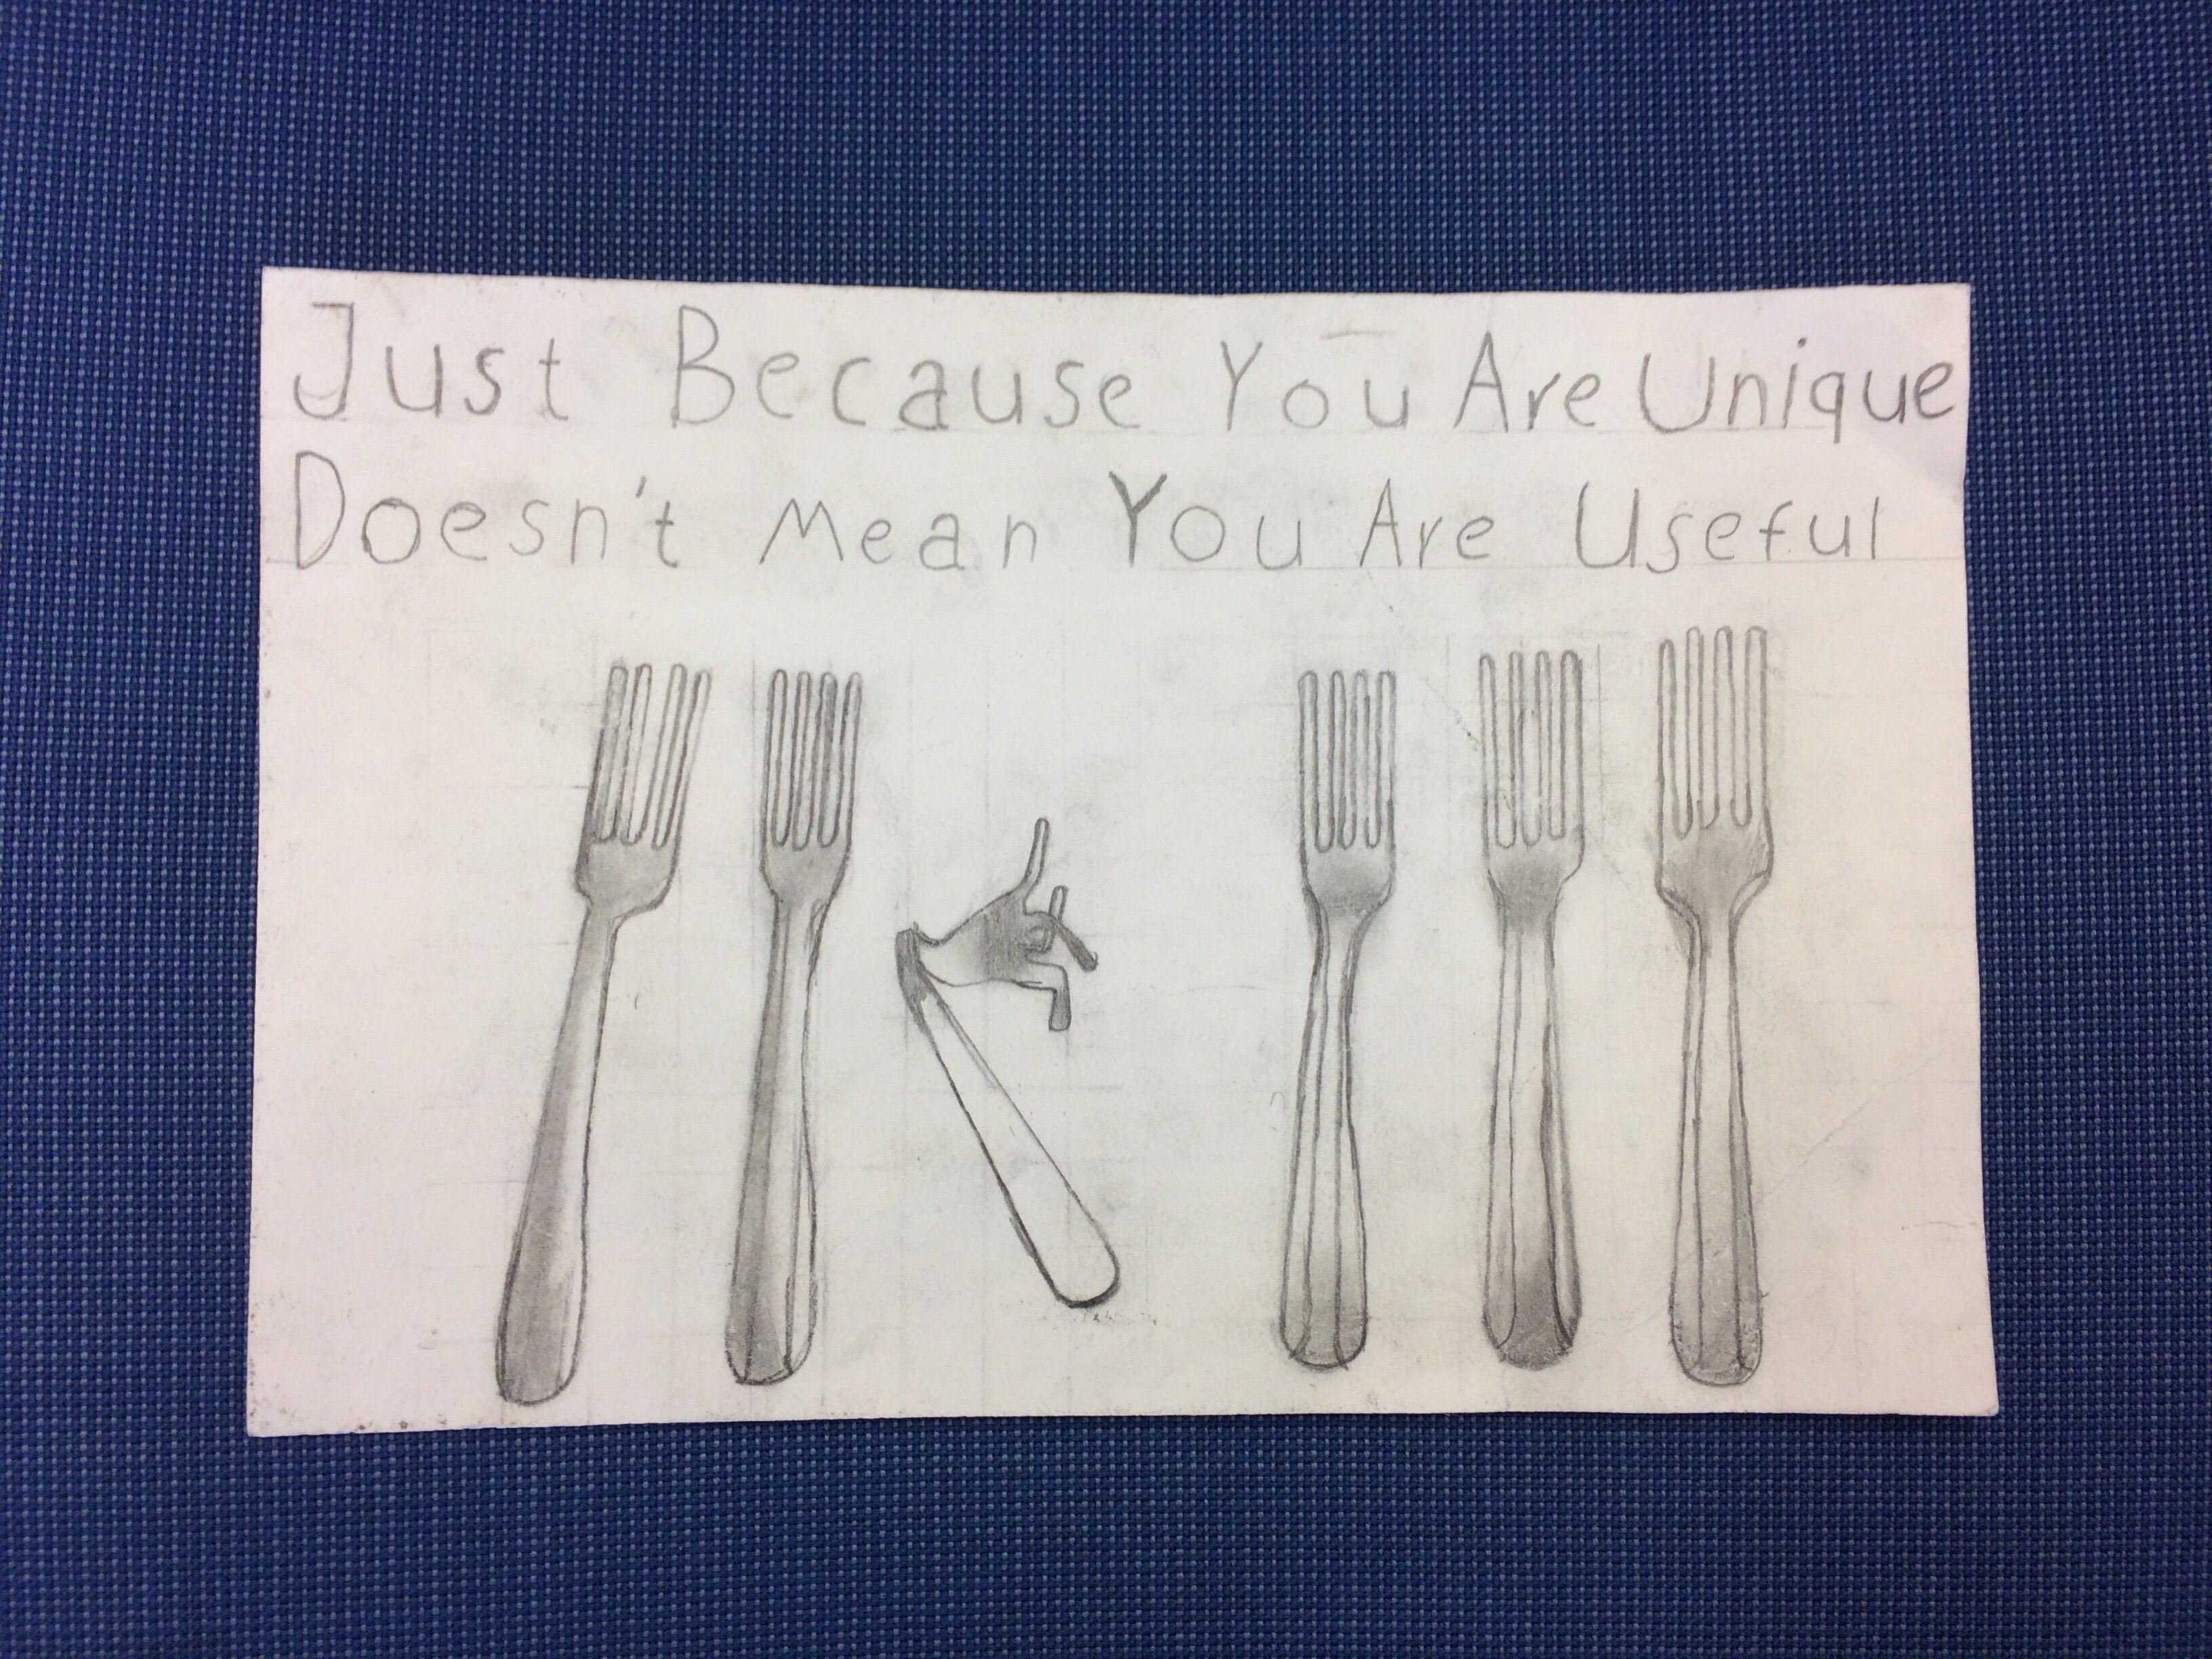 Just Because You Are Unique
Doesn't Mean You Are Useful